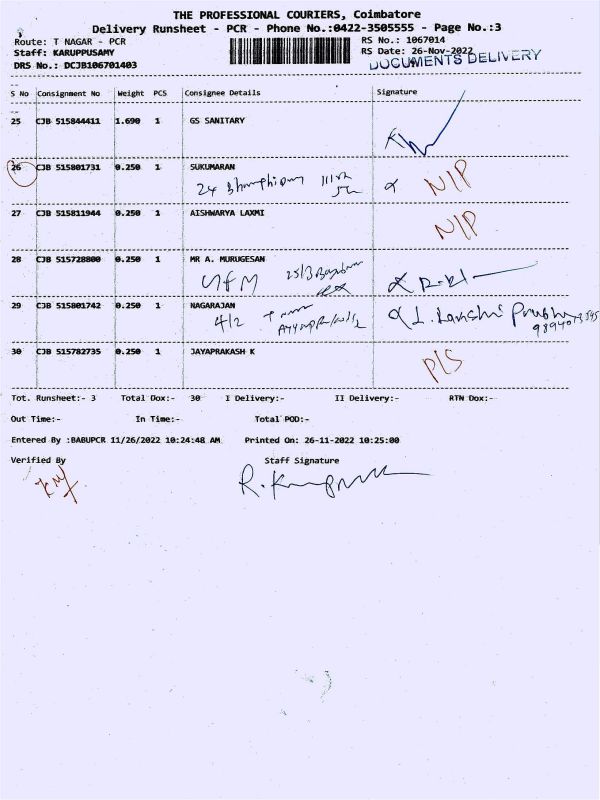 THE PROFESSIONAL COURIERS, Coimbatore
Delivery Runsheet - PCR - Phone No.:0422-3505555 - Page No.:3
Route: T NAGAR - PCR
Staff: KARUPPUSAMY
DRS No.: DCJB106701403
RS No.: 1067014
RS Date: 26-Nov-2022
DOCUMENTS DELIVERY
S No Consignment No Weight PCS Consignee Details Signature
25 CJB 515844411 1.690 1 GS SANITARY
26 CJB 515801731 0.250 1 SUKUMARAN
24 N/P
27 CJB 515811944 0.250 1 AISHWARYA LAXMI
N/P
28 CJB 515728800 0.250 1 MR A. MURUGESAN
29 CJB 515801742 0.250 1 NAGARAJAN
4/2 L. Lakshi Prabhu
30 CJB 515782735 0.250 1 JAYAPRAKASH K
P/S
Tot. Runsheet:- 3 Total Dox:- 30 I Delivery:- II Delivery:- RTN Dox:-
Out Time:- In Time:- Total POD:-
Entered By :BABUPCR 11/26/2022 10:24:48 AM Printed On: 26-11-2022 10:25:00
Verified By Staff Signature